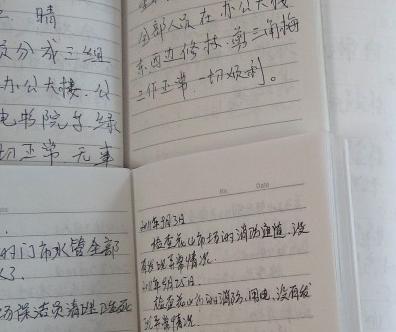 晴
分成三组
办公大楼.公
电书院子绿
切正常 无事
全部人员在办公大楼
东西边修枝.剪三角梅
工作正常.一切顺利。
的门市水管全部
场保洁员清班
No. Date
2011年9月3日
检查花山市场的消防通道.没
有发现异常情况.
2011年9月25日
检查花山的消防.用电.没有发
现异常情况.